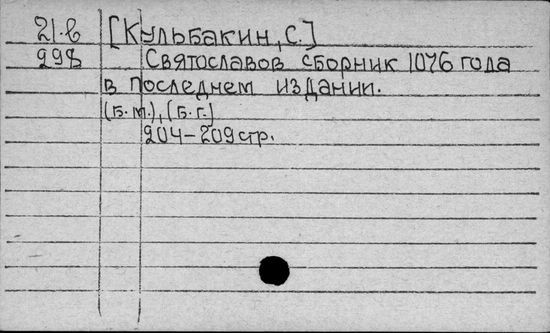 21.в [Кульбакин, С.]
998 Святославов сборник 1076 года
в последнем издании.
(Б.м.), [Б.г.]
204-209 стр.